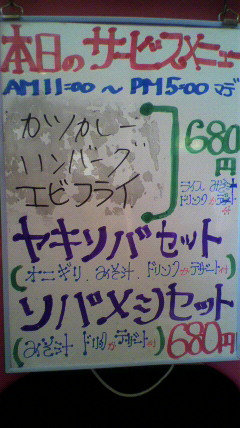 本日のサービスメニュー
AM11:00 ～ PM5:00 マデ
カツカレー
ハンバーグ
エビフライ
680円
ライス みそ汁
ドリンクかデザート付
ヤキソバセット
(オニギリ、みそ汁 ドリンクかデザート付)
ソバメシセット
(みそ汁 ドリンクかデザート付)
680円